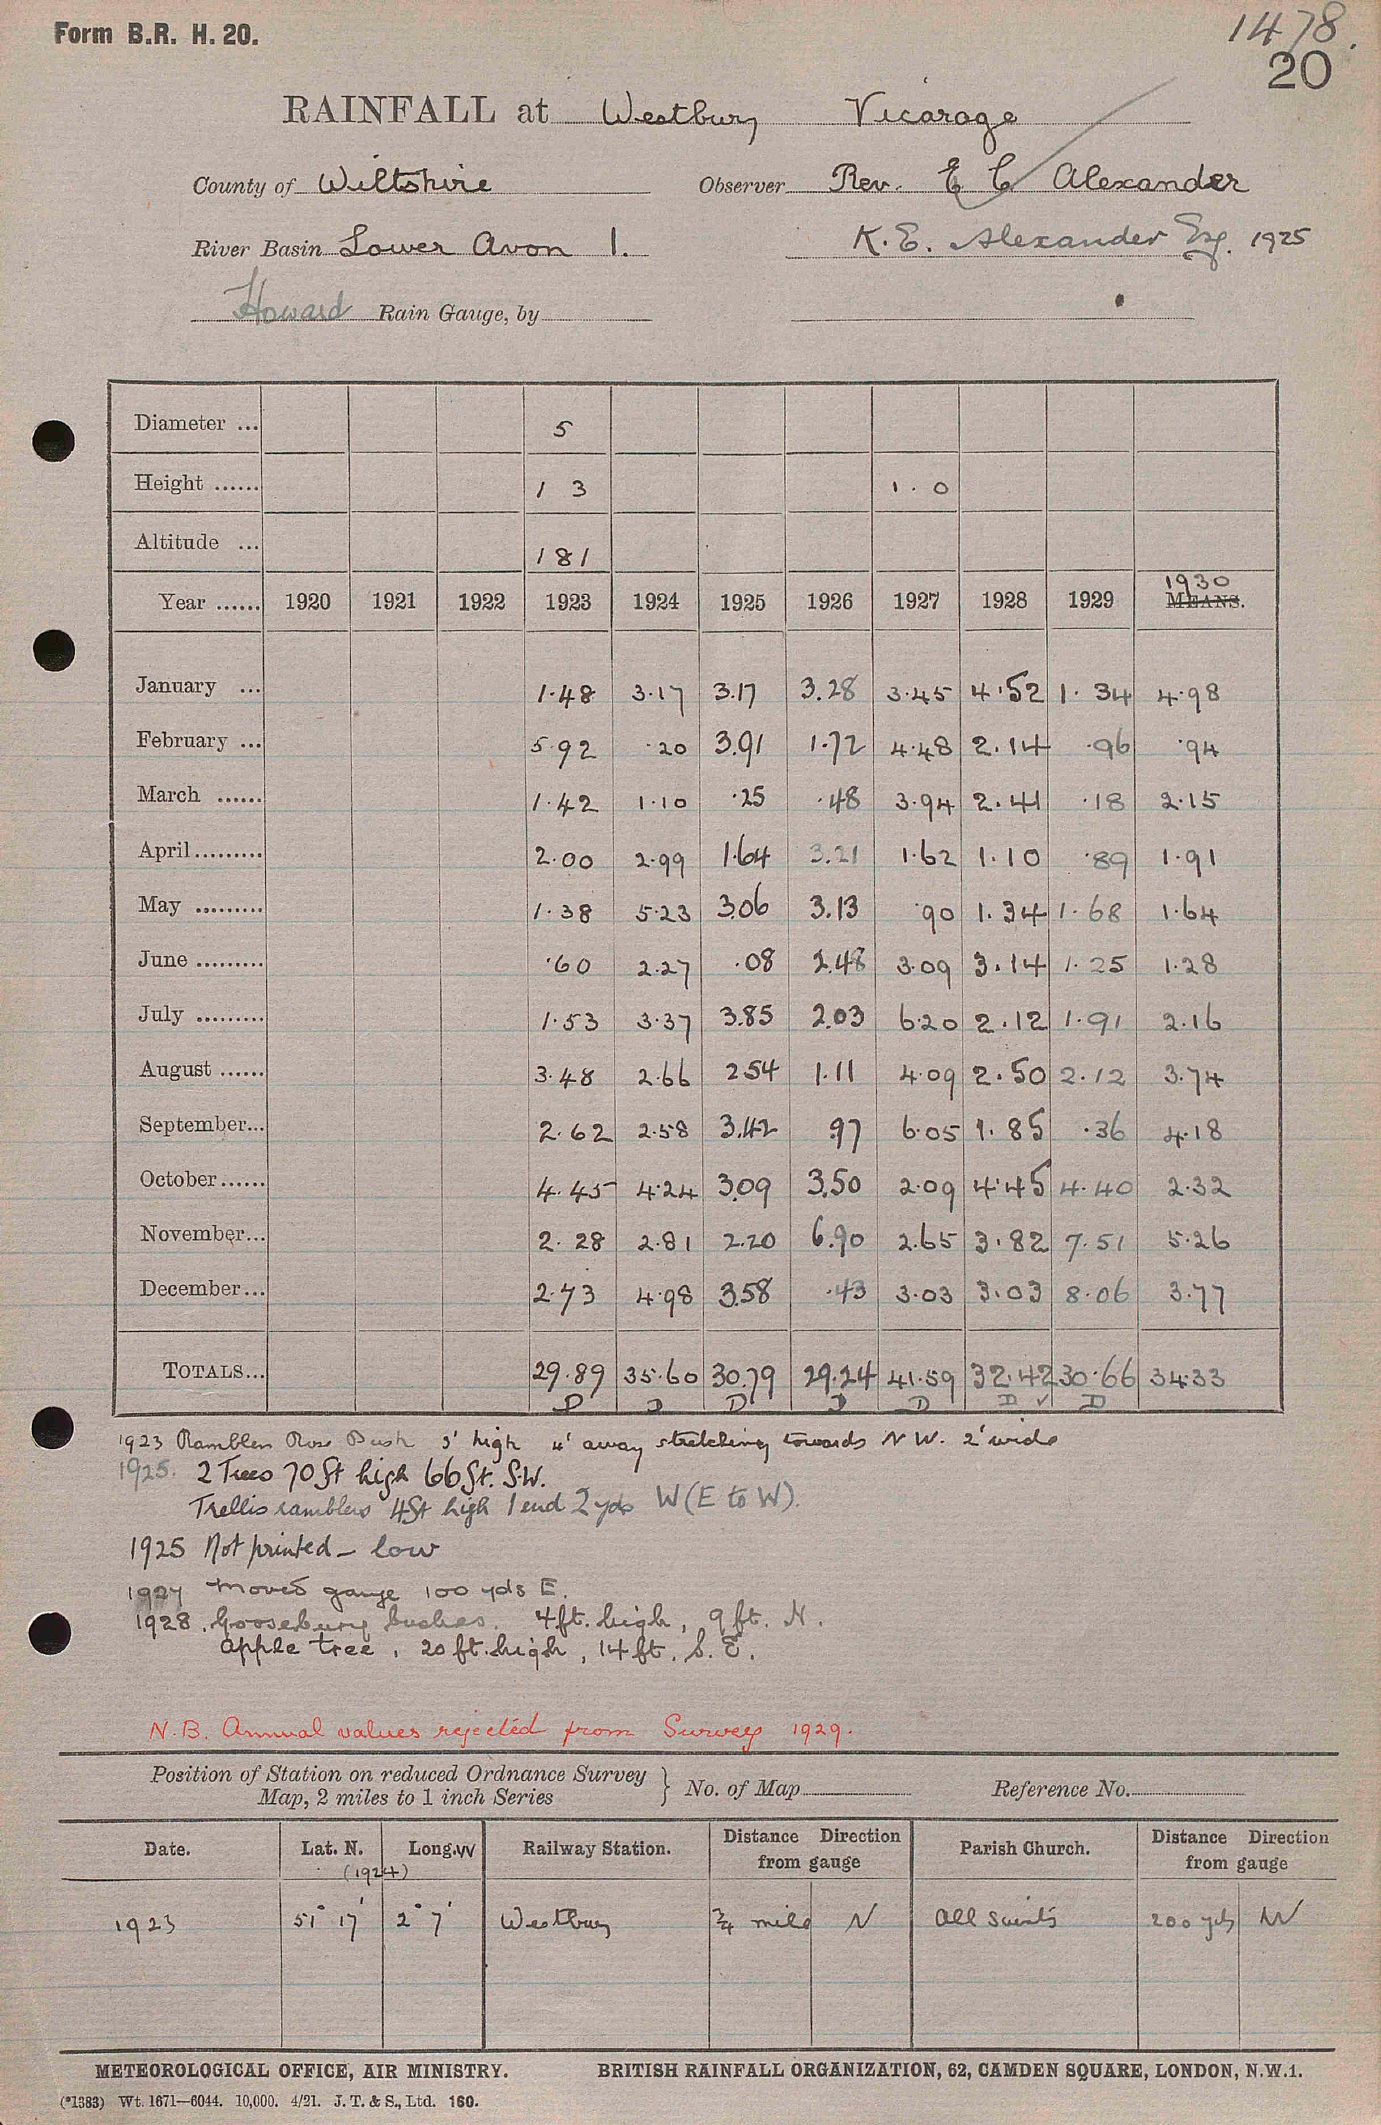 Form B.R. H. 20.
1478.
20
RAINFALL at Westbury Vicarage
County of Wiltshire Observer Rev. E C Alexander
River Basin Lower Avon 1. K. E. Alexander Esq. 1925
Howard Rain Gauge, by
Diameter ... 5
Height ...... 1 3 1 . 0
Altitude ... 181
Year ...... 1920 1921 1922 1923 1924 1925 1926 1927 1928 1929 1930 MEANS.
January ... 1.48 3.17 3.17 3.28 3.45 4.52 1.34 4.98
February ... 5.92 .20 3.91 1.72 4.48 2.14 .96 .94
March ...... 1.42 1.10 .25 .48 3.94 2.41 .18 2.15
April......... 2.00 2.99 1.64 3.21 1.62 1.10 .89 1.91
May ......... 1.38 5.23 3.06 3.13 .90 1.34 1.68 1.64
June ......... .60 2.27 .08 2.48 3.09 3.14 1.25 1.28
July ......... 1.53 3.37 3.85 2.03 6.20 2.12 1.91 2.16
August ...... 3.48 2.66 2.54 1.11 4.09 2.50 2.12 3.74
September... 2.62 2.58 3.42 .97 6.05 1.85 .36 4.18
October...... 4.45 4.24 3.09 3.50 2.09 4.45 4.40 2.32
November... 2.28 2.81 2.20 6.90 2.65 3.82 7.51 5.26
December... 2.73 4.98 3.58 .43 3.03 3.03 8.06 3.77
TOTALS... 29.89 35.60 30.79 29.24 41.59 32.42 30.66 34.33
D D D D D D ✓ D
1923 Rambler Rose Bush 5' high 4' away stretching towards N W. 2' wide
1925. 2 Trees 70 ft high 66 ft. S.W.
Trellis ramblers 4ft high 1 end 2 yds W (E to W).
1925 Not printed - low
1927 Moved gauge 100 yds E.
1928. Gooseberry bushes. 4ft. high, 9 ft. N.
apple tree, 20 ft. high, 14 ft. S. E.
N.B. Annual values rejected from Survey 1929.
Position of Station on reduced Ordnance Survey Map, 2 miles to 1 inch Series } No. of Map Reference No.
Date. Lat. N. Long. W Railway Station. Distance Direction from gauge Parish Church. Distance Direction from gauge
(1924)
1923 51° 17' 2° 7' Westbury 3/4 mile N All Saints 200 yds NW
METEOROLOGICAL OFFICE, AIR MINISTRY. BRITISH RAINFALL ORGANIZATION, 62, CAMDEN SQUARE, LONDON, N.W.1.
(*1383) Wt. 1671—6044. 10,000. 4/21. J. T. & S., Ltd. 160.